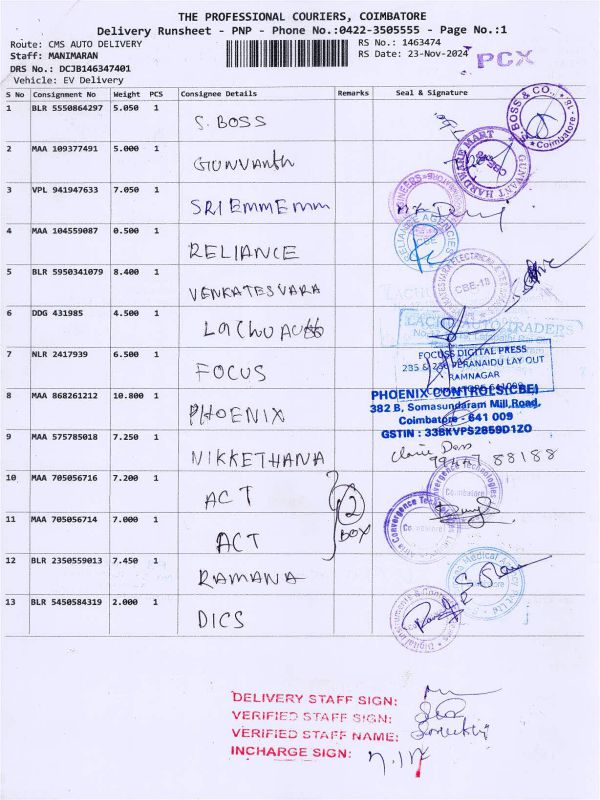 THE PROFESSIONAL COURIERS, COIMBATORE
Delivery Runsheet - PNP - Phone No.:0422-3505555 - Page No.:1
Route: CMS AUTO DELIVERY
RS No.: 1463474
Staff: MANIMARAN
RS Date: 23-Nov-2024
PCX
DRS No.: DCJB146347401
Vehicle: EV Delivery
S No Consignment No Weight PCS Consignee Details Remarks Seal & Signature
1 BLR 5550864297 5.050 1 S. BOSS
BOSS & CO.,
Coimbatore
2 MAA 109377491 5.000 1 GUNVANTH
GUNVANT HARDWARE MART
CBE
3 VPL 941947633 7.050 1 SRI EMMEMM
4 MAA 104559087 0.500 1 RELIANCE
RELIANCE AGENCIES
CBE
5 BLR 5950341079 8.400 1 VENKATESVARA
CBE-18
6 DDG 431985 4.500 1 LACHU AUTO
LACHU AUTO TRADERS
7 NLR 2417939 6.500 1 FOCUS
FOCUSS DIGITAL PRESS
235 & 236 PERANAIDU LAY OUT
RAMNAGAR
8 MAA 868261212 10.800 1 PHOENIX
PHOENIX CONTROLS(CBE)
382 B, Somasundaram Mill Road,
Coimbatore - 641 009
GSTIN : 33BKVPS2859D1ZO
9 MAA 575785018 7.250 1 NIKKETHANA
88188
10 MAA 705056716 7.200 1 ACT
Convergence Technologies
Coimbatore
2
BOX
11 MAA 705056714 7.000 1 ACT
Convergence
12 BLR 2350559013 7.450 1 RAMANA
Medical Agency Pvt Ltd
13 BLR 5450584319 2.000 1 DICS
Digital Instruments & Control
DELIVERY STAFF SIGN:
VERIFIED STAFF SIGN:
VERIFIED STAFF NAME:
INCHARGE SIGN: